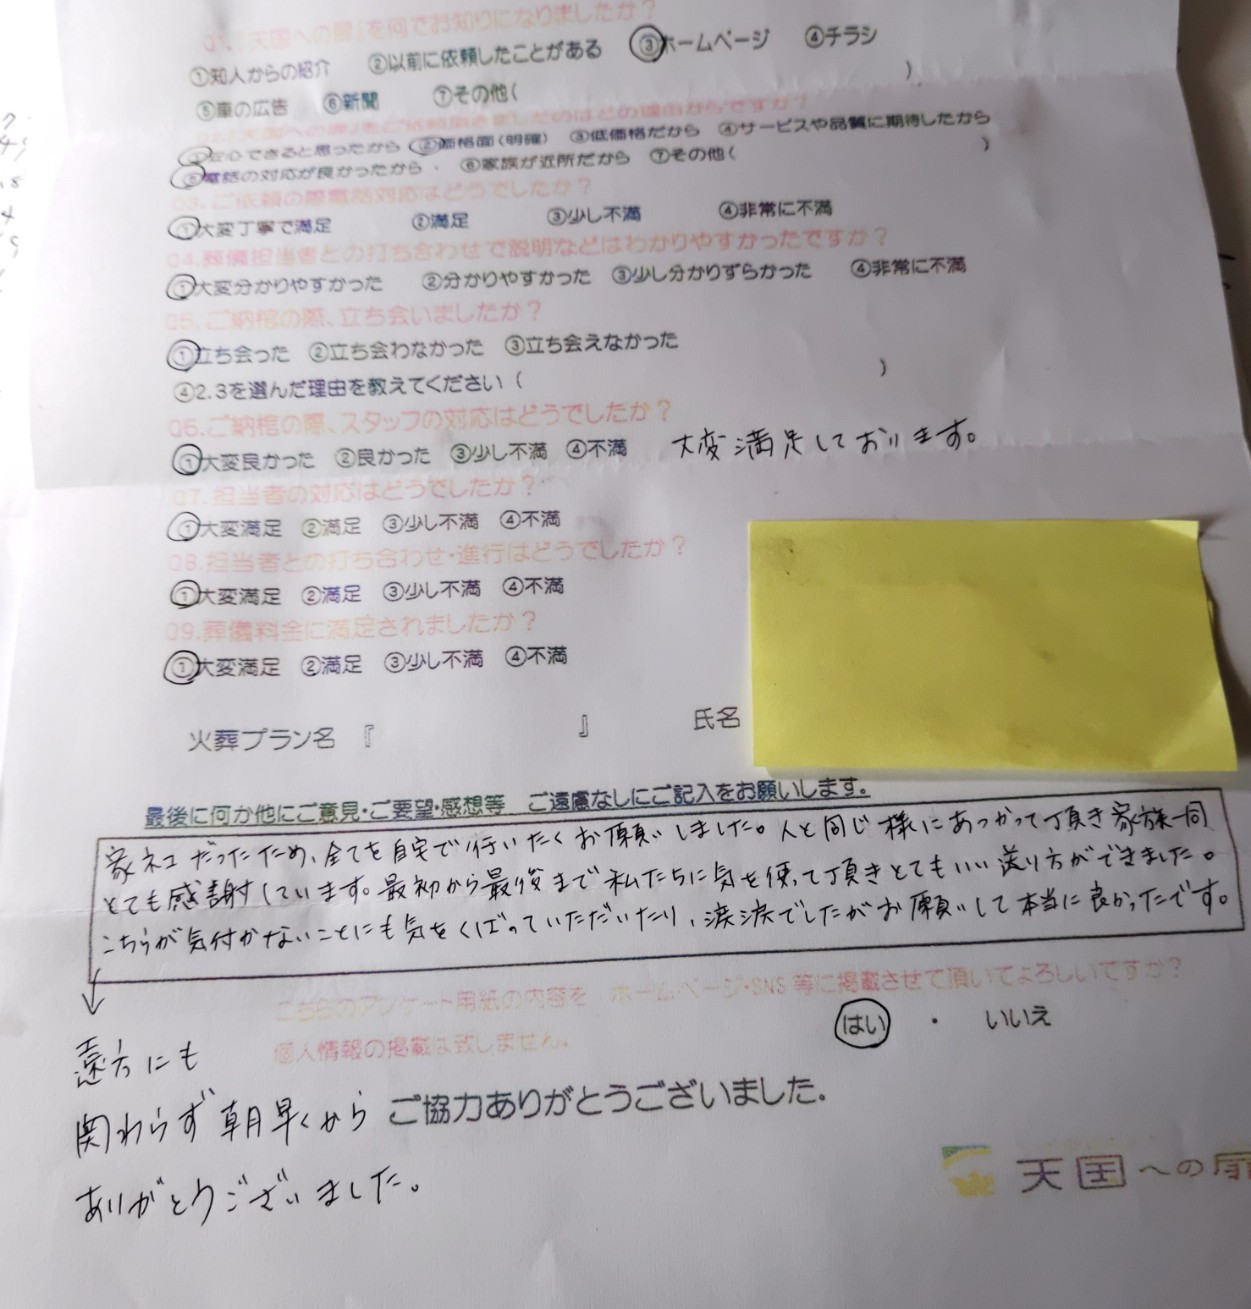 Q1.「天国への扉」を何でお知りになりましたか？
①知人からの紹介 ②以前に依頼したことがある ③ホームページ ④チラシ
⑤車の広告 ⑥新聞 ⑦その他( )
①安心できると思ったから ②価格面(明確) ③低価格だから ④サービスや品質に期待したから
⑤電話の対応が良かったから ⑥家族が近所だから ⑦その他( )
Q3.ご依頼の際電話対応はどうでしたか？
①大変丁寧で満足 ②満足 ③少し不満 ④非常に不満
Q4.葬儀担当者との打ち合わせで説明などはわかりやすかったですか？
①大変分かりやすかった ②分かりやすかった ③少し分かりずらかった ④非常に不満
Q5.ご納棺の際、立ち会いましたか？
①立ち会った ②立ち会わなかった ③立ち会えなかった
④2.3を選んだ理由を教えてください( )
Q6.ご納棺の際、スタッフの対応はどうでしたか？
①大変良かった ②良かった ③少し不満 ④不満 大変満足しております。
Q7.担当者の対応はどうでしたか？
①大変満足 ②満足 ③少し不満 ④不満
Q8.担当者との打ち合わせ・進行はどうでしたか？
①大変満足 ②満足 ③少し不満 ④不満
Q9.葬儀料金に満足されましたか？
①大変満足 ②満足 ③少し不満 ④不満
火葬プラン名『 』 氏名
最後に何か他にご意見・ご要望・感想等 ご遠慮なしにご記入をお願いします。
家ネコだったため、全てを自宅で行いたくお願いしました。人と同じ様にあつかって頂き家族一同
とても感謝しています。最初から最後まで私たちに気を使って頂きとてもいい送り方ができました。
こちらが気付かないことにも気をくばっていただいたり、涙涙でしたがお願いして本当に良かったです。
こちらのアンケート用紙の内容を ホームページ・SNS等に掲載させて頂いてよろしいですか？
個人情報の掲載は致しません。 はい ・ いいえ
遠方にも
関わらず朝早くから ご協力ありがとうございました.
ありがとうございました。
天国への扉